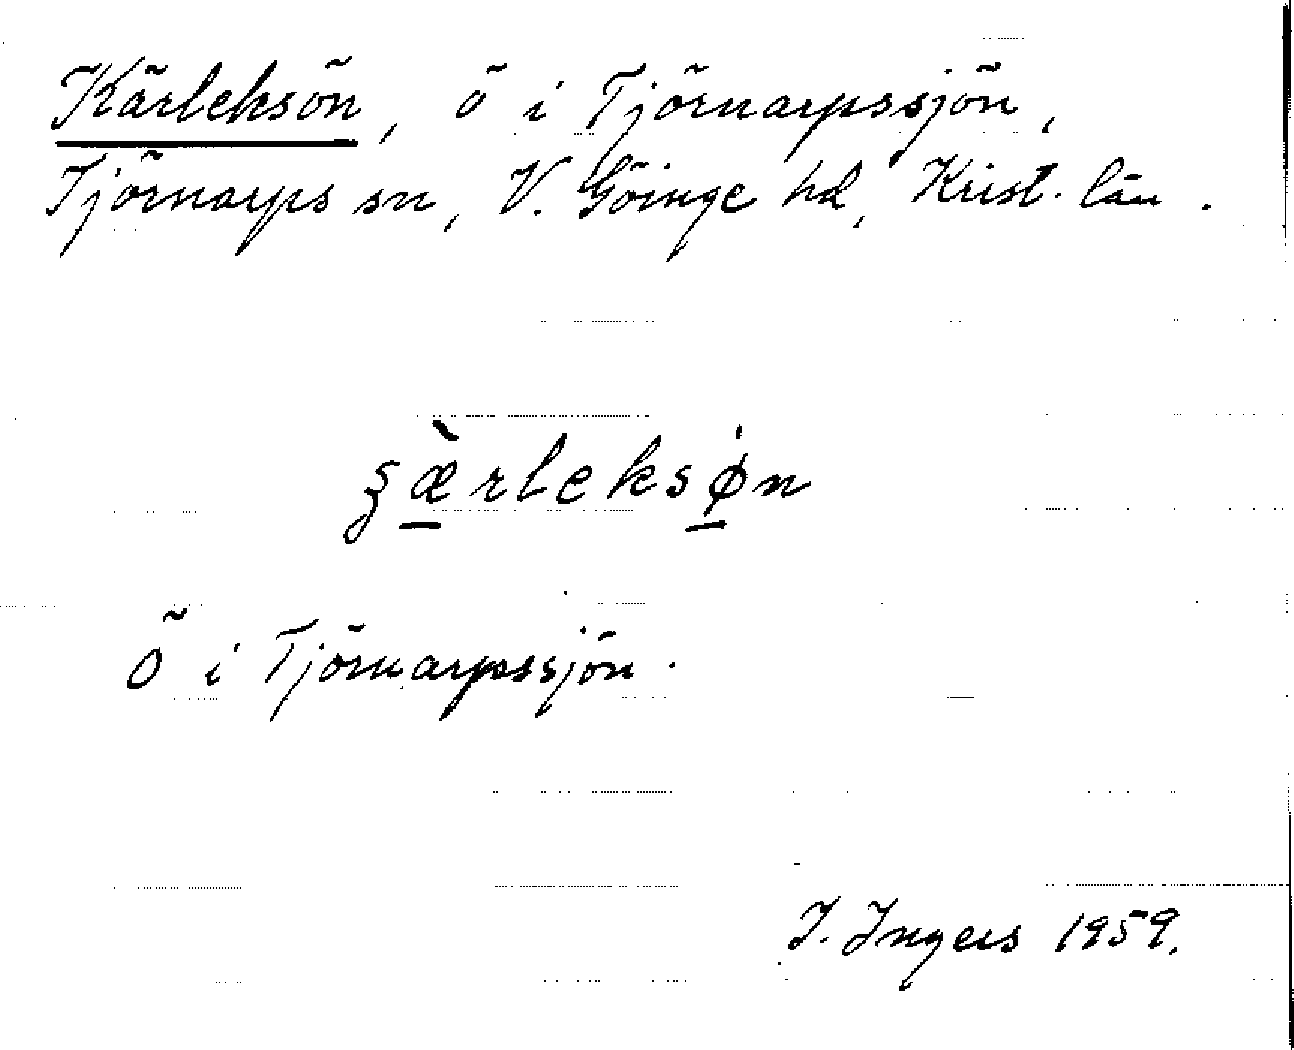 Kärleksön, ö i Tjörnarpssjön,
Tjörnarps sn, V. Göinge hd, Krist. län.
ʂæ̀rleksǿn
Ö i Tjörnarpssjön.
I. Ingers 1959.